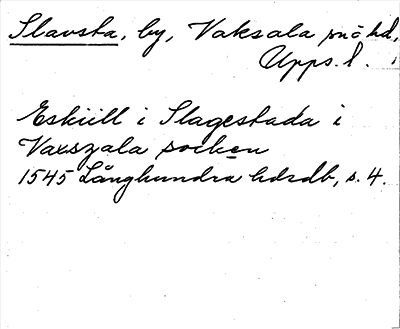 Slavsta, by, Vaksala sn o hd,
Upps. l.
Eskiill i Slagestada i
Vaxszala socken
1545 Långhundra hdsdb, s. 4.